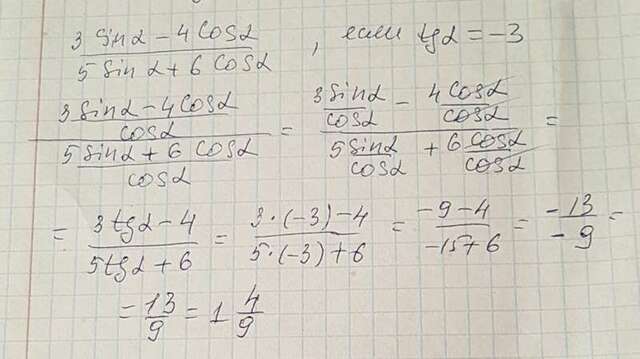 (3 Sin α − 4 Cos α) / (5 Sin α + 6 Cos α) , если tg α = −3
((3 Sin α − 4 Cos α) / cos α) / ((5 Sin α + 6 Cos α) / cos α) = (3 Sin α / cos α − 4 Cos α / cos α) / (5 Sin α / cos α + 6 Cos α / cos α) =
= (3 tg α − 4) / (5 tg α + 6) = (3·(−3) − 4) / (5·(−3) + 6) = (−9 − 4) / (−15 + 6) = −13 / −9 =
= 13/9 = 1 4/9